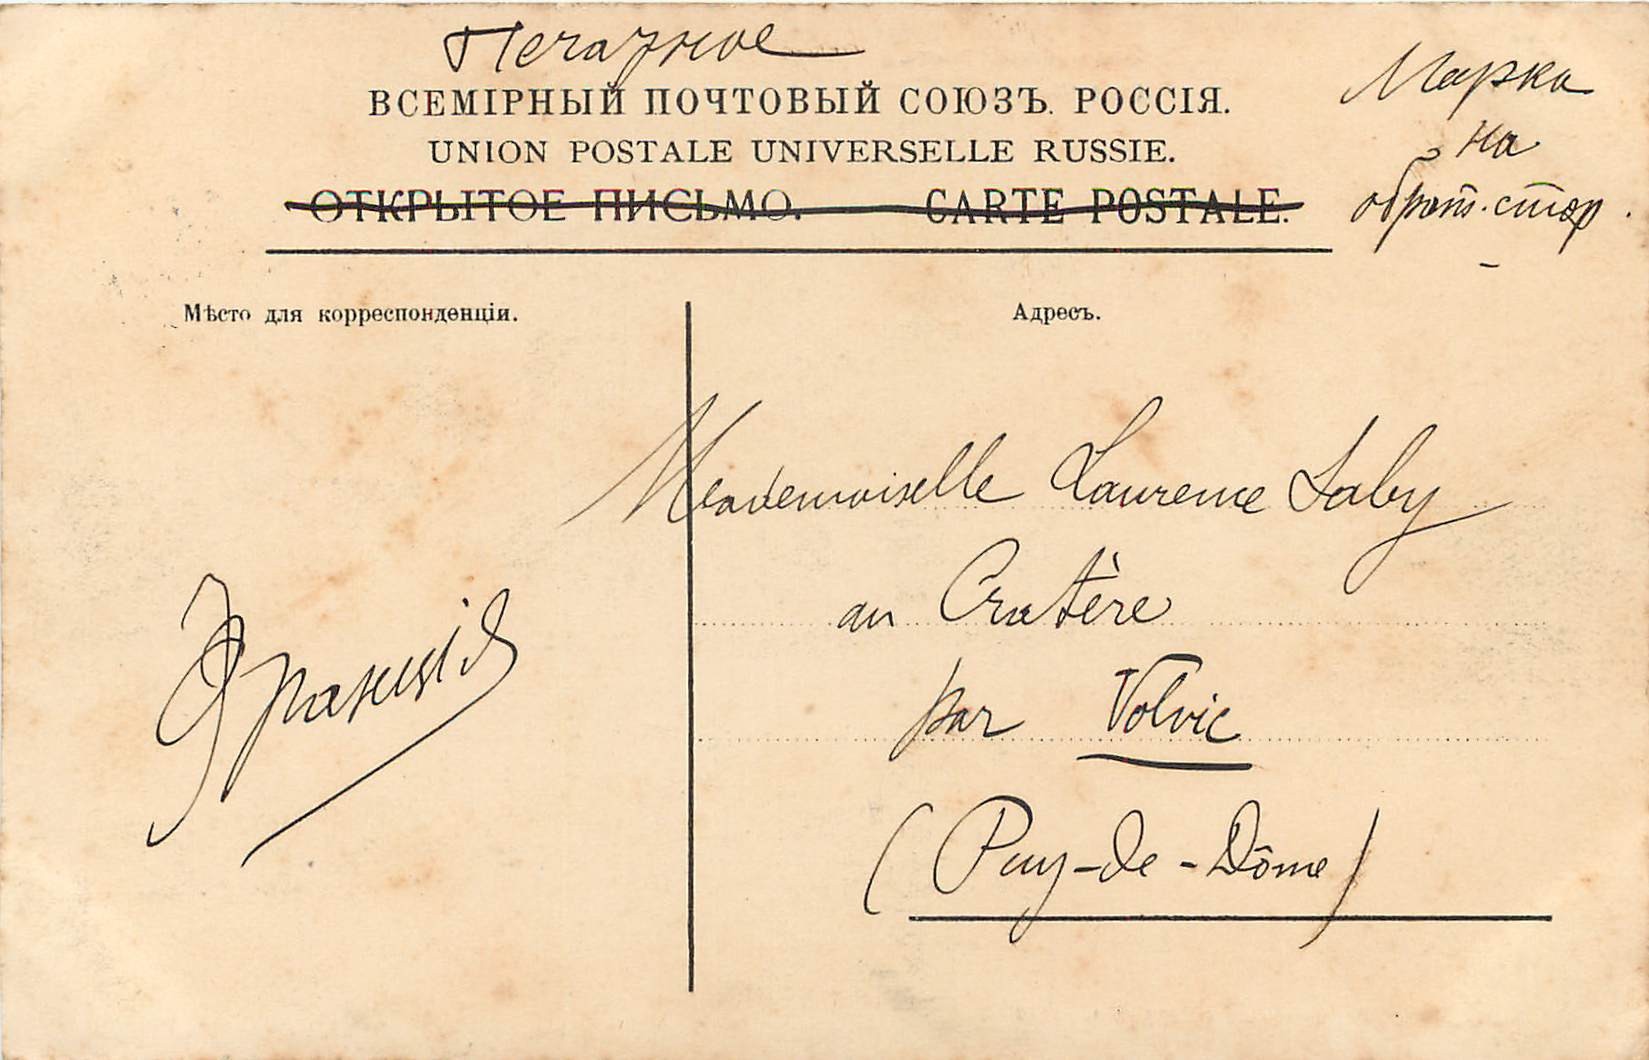 Печатное
ВСЕМІРНЫЙ ПОЧТОВЫЙ СОЮЗЪ. РОССІЯ.
UNION POSTALE UNIVERSELLE RUSSIE.
ОТКРЫТОЕ ПИСЬМО. CARTE POSTALE.
Марка
на
обрат. стор.
Мѣсто для корреспонденціи.
Адресъ.
Mademoiselle Laurence Laby
au Cratère
par Volvic
(Puy-de-Dôme)
Франція